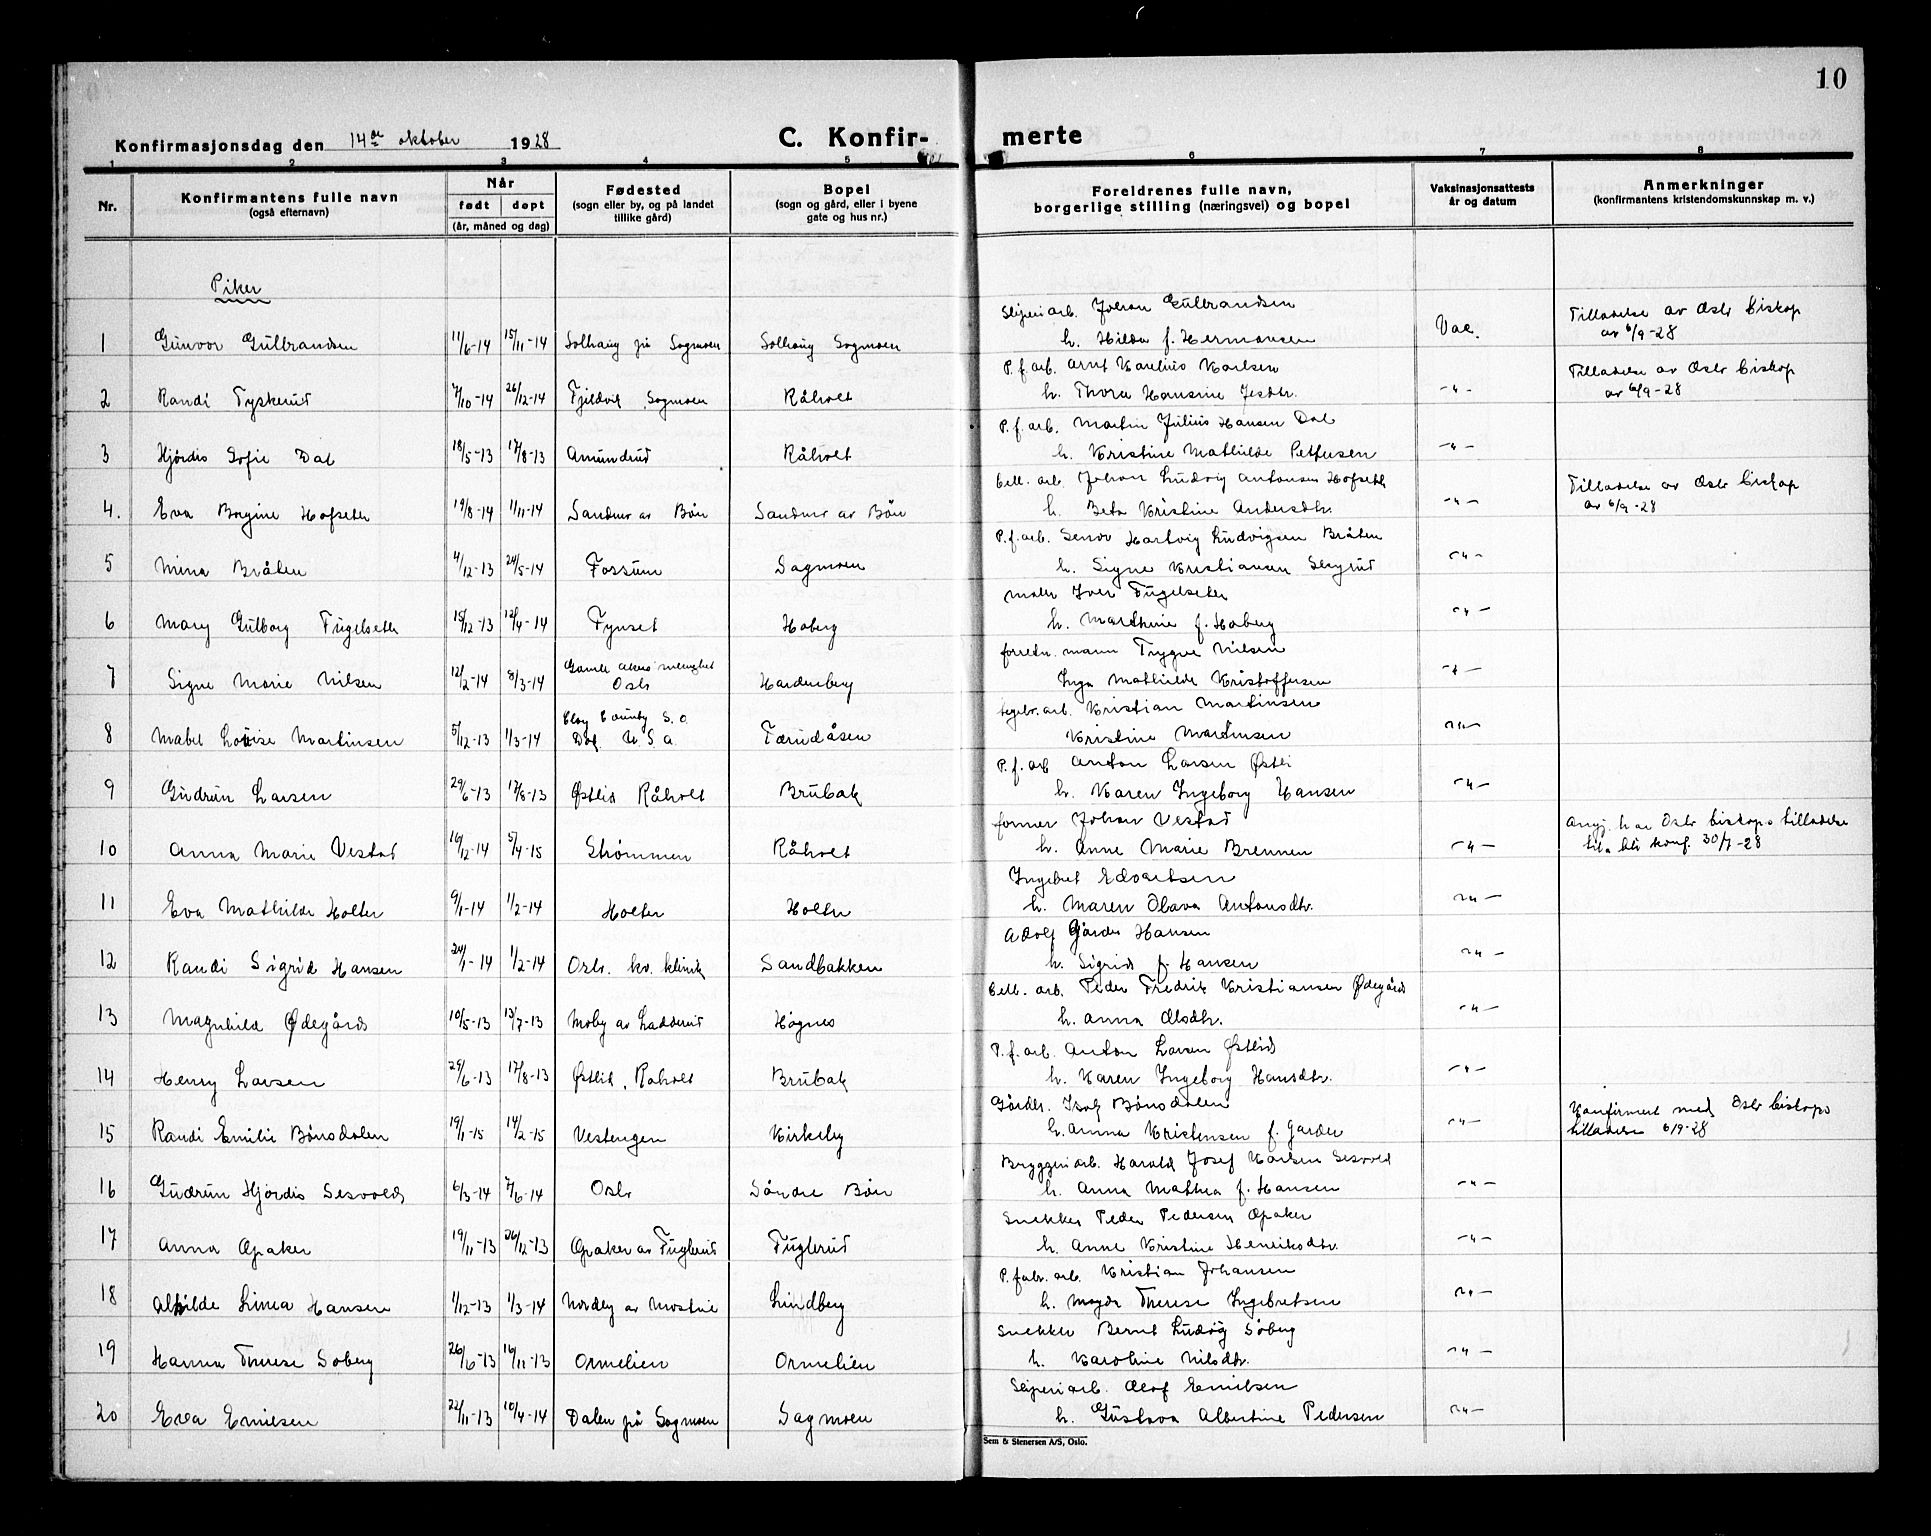 10
Konfirmasjonsdag den 14de oktober 1928
C. Konfir- merte
1 2 3 4 5 6 7 8
Nr. | Konfirmantens fulle navn (også efternavn) | Når født døpt (år, måned og dag) | Fødested (sogn eller by, og på landet tillike gård) | Bopel (sogn og gård, eller i byene gate og hus nr.) | Foreldrenes fulle navn, borgerlige stilling (næringsvei) og bopel | Vaksinasjonsattests år og datum | Anmerkninger (konfirmantens kristendomskunnskap m. v.)
Piker
Sliperiarb. Johan Gulbrandsen | Tilladelse av Oslo biskop
1 Gunvor Gulbrandsen 11/6-14 15/11-14 Solhaug på Sagmoen Solhaug Sagmoen h. Hilda f. Hermansen Vac. av 6/9-28
P.f. arb. Arnt Karelius Karlsen | Tilladelse av Oslo biskop
2 Randi Tyskerud 7/10-14 26/12-14 Fjeldvik Sagmoen Råholt h. Thora Hansine Jesdtr. -"- av 6/9-28
P.f. arb. Martin Julius Hansen Dal
3 Hjördis Sofie Dal 18/5-13 17/8-13 Amundrud Råholt h. Kristine Mathilde Pettersen -"-
Cell. arb. Johan Ludvig Antonsen Hofseth | Tilladelse av Oslo biskop
4. Eva Borgine Hofseth 19/8-14 1/11-14 Sandmo av Bön Sandmo av Bön h. Beta Kristine Andersdtr. -"- av 6/9-28
P.f. arb. Hartvig Ludvigsen Bråten
5 Mina Bråten 4/12-13 24/5-14 Fossum Sagmoen h. Signe Kristiansen -"-
maler Iver Fugelseth
6 Mary Gulborg Fugelseth 15/12-13 12/4-14 Tynset Hoberg h. Marthine f. Hoberg -"-
forretn. mann Trygve Nilsen
7 Signe Marie Nilsen 12/2-14 8/3-14 Gamle Akers menighet Oslo Hardenberg Inga Mathilde Kristoffersen -"-
teglv. arb. Kristian Martinsen
8 Mabel Louise Martinsen 5/12-13 1/3-14 Clay County S. O. Dak. U. S. A. Tærudåsen Kristine Martinsen -"-
P.f. arb Anton Larsen Østli
9 Gudrun Larsen 29/6-13 17/8-13 Østlid Råholt Brubak h. Karen Ingeborg Hansen -"-
former Johan Vestad | Angj. har Oslo biskops tilladelse
10 Anna Marie Vestad 16/12-14 5/4-15 Strømmen Råholt h. Anne Marie Brennen -"- til å bli konf. 30/7-28
Ingebret Edvartsen
11 Eva Mathilde Holter 9/1-14 1/2-14 Holter Holter h. Maren Olava Antonsdtr. -"-
Adolf Gårder Hansen
12 Randi Sigrid Hansen 24/1-14 1/2-14 Oslo. kv. klinik Sandbakken h. Sigrid f. Hansen -"-
Cell. arb. Peder Fredrik Kristiansen Ødegård
13 Magnhild Ødegård 10/5-13 13/7-13 Moby av Ladderud Högnes h. Anna Olsdtr. -"-
P.f. arb. Anton Larsen Østlid
14 Henry Larsen 29/6-13 17/8-13 Østlid, Råholt Brubak h. Karen Ingeborg Hansdtr. -"-
Gårdbr. Isak Bönsdalen | Konfirmert med Oslo biskops
15 Randi Emilie Bönsdalen 19/1-15 14/2-15 Vestengen Kirkeby h. Anna Kristensen f. Garder -"- tilladelse 6/9-28
Bryggeriarb. Harald Josef Karlsen Sesvold
16 Gudrun Hjördis Sesvold 6/3-14 7/6-14 Oslo Söndre Bön h. Anna Mathea f. Hansen -"-
Snekker Peder Pedersen Opaker
17 Anna Opaker 19/11-13 26/12-13 Opaker av Fuglerud Fuglerud h. Anne Kristine Henriksdtr. -"-
P. fabr. arb. Kristian Johansen
18 Alhilde Linea Hansen 1/12-13 1/3-14 Nordby av Mostue Lundberg h. Magda Therese Ingebretsen -"-
Snekker Bernt Ludvig Söberg
19 Hanna Therese Söberg 26/6-13 16/11-13 Ormelien Ormelien h. Karoline Nilsdtr. -"-
Sliperiarb. Olaf Emilsen
20 Eva Emilsen 22/11-13 10/4-14 Dalen på Sagmoen Sagmoen h. Gustava Albertine Pedersen -"-
Sem & Stenersen A/S, Oslo.